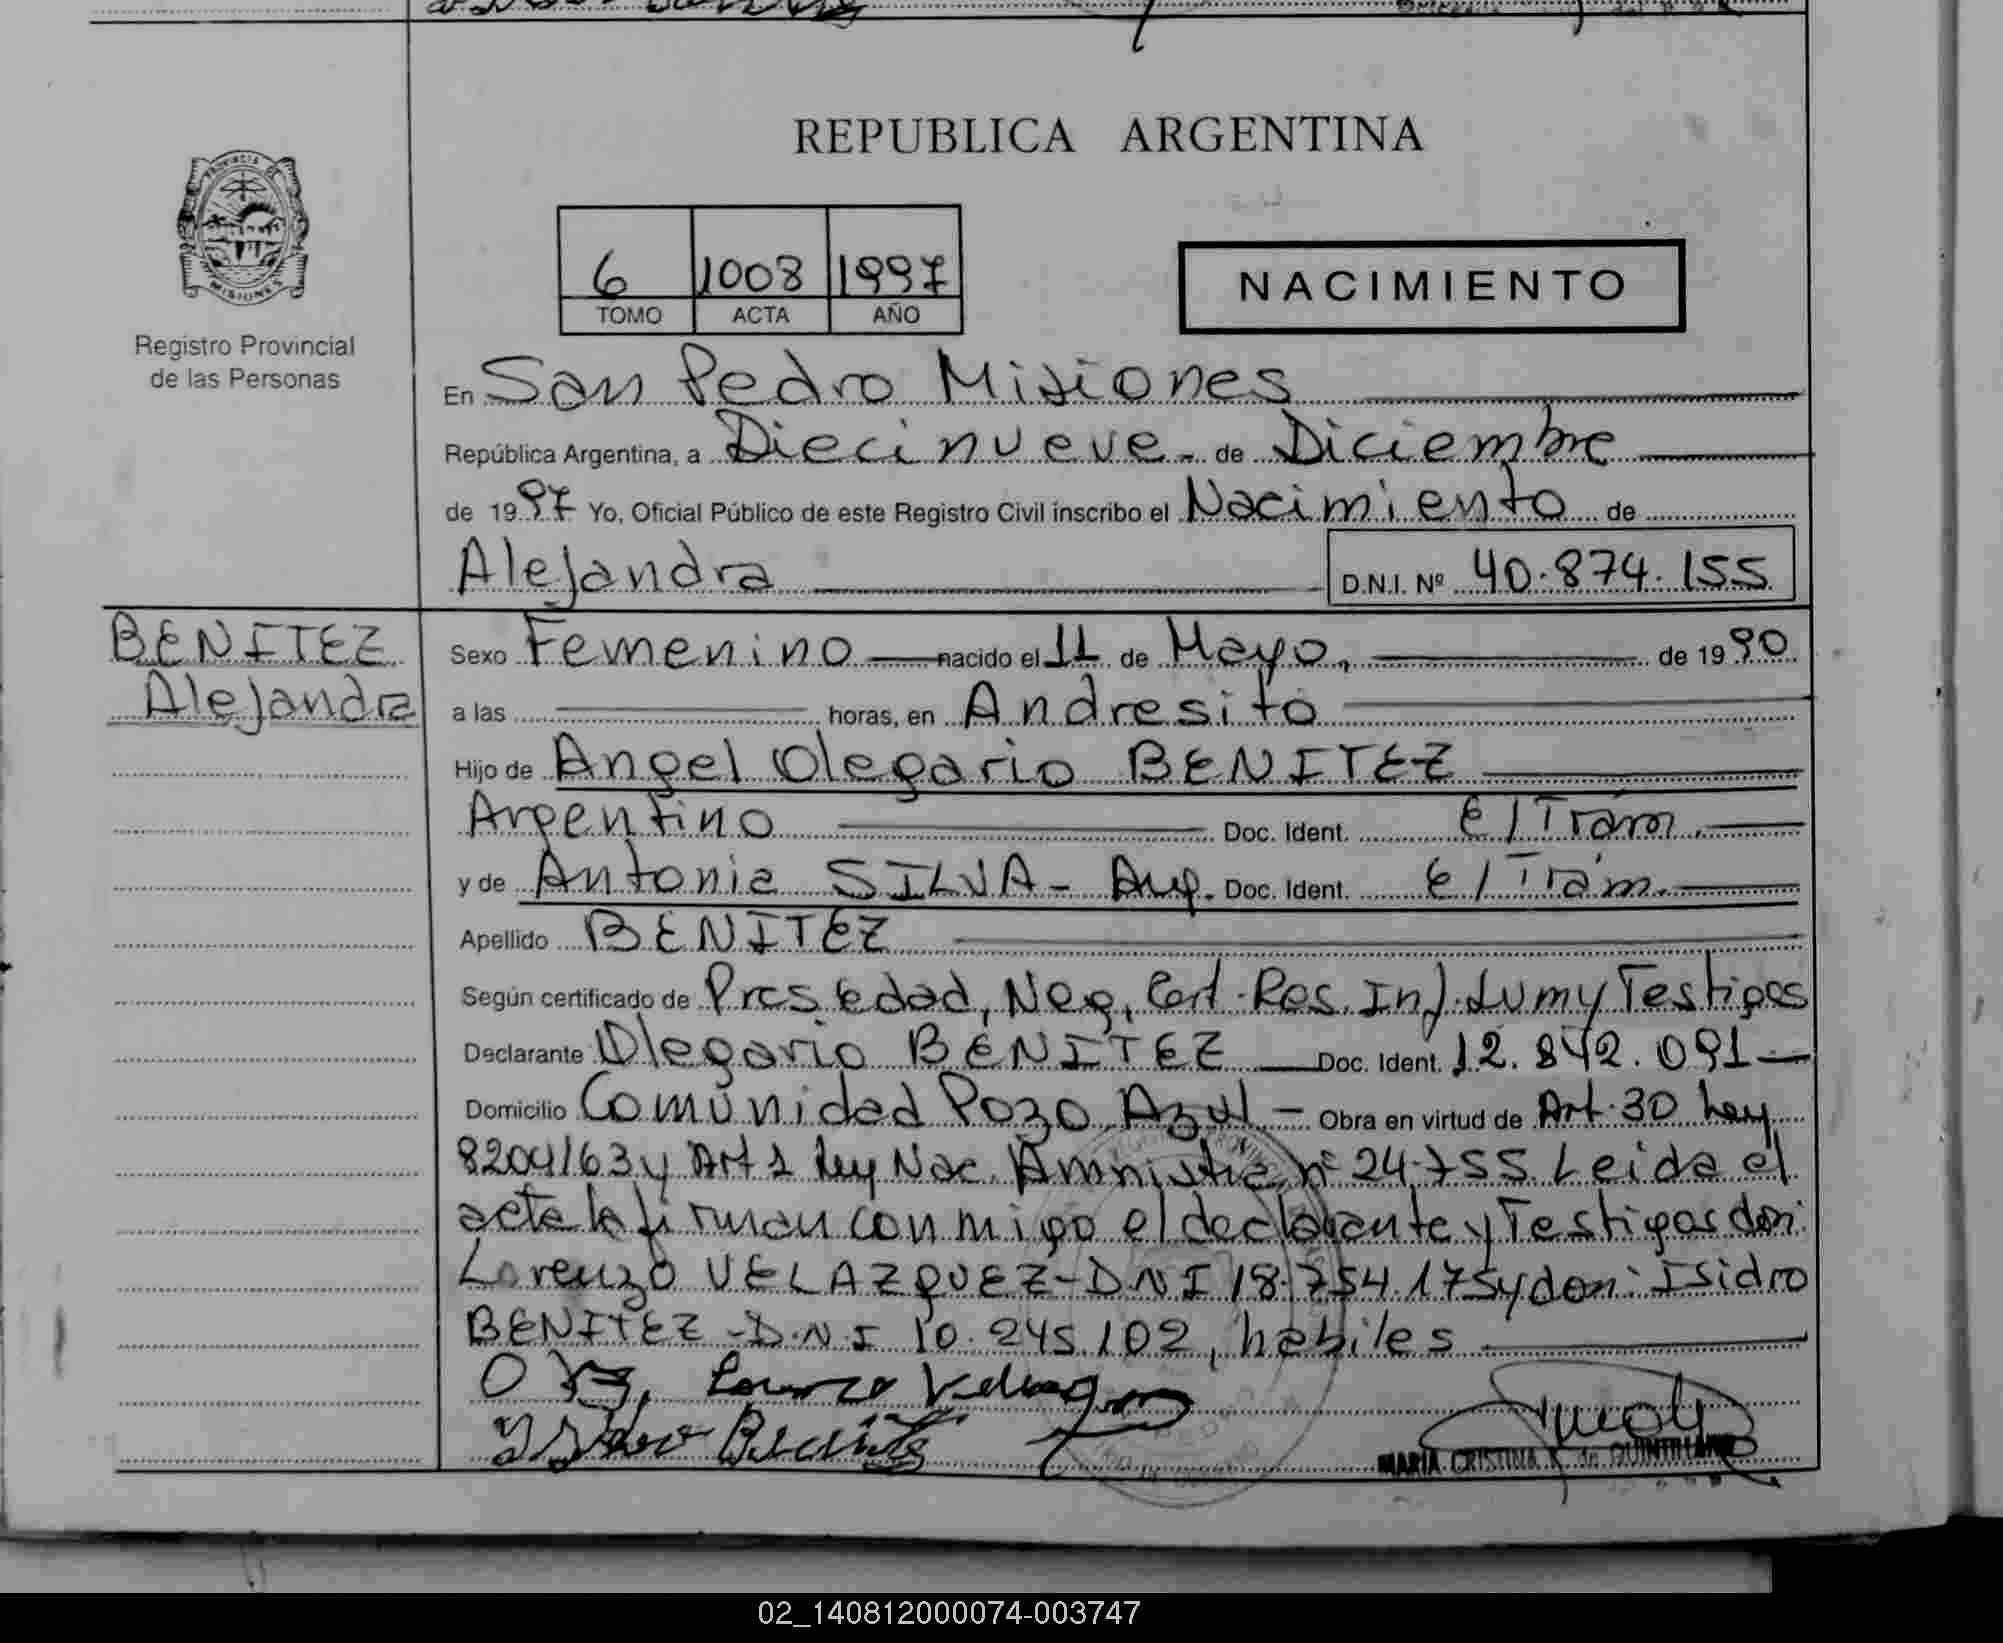 REPUBLICA ARGENTINA
PROVINCIA DE
MISIONES
Registro Provincial
de las Personas
6 1008 1997
TOMO ACTA AÑO
NACIMIENTO
En San Pedro Misiones
República Argentina, a Diecinueve - de Diciembre
de 1997 Yo, Oficial Público de este Registro Civil inscribo el Nacimiento de
Alejandra D.N.I. Nº 40.874.155
BENITEZ
Alejandra
Sexo Femenino nacido el 11 de Mayo, de 1990
a las horas, en Andresito
Hijo de Angel Olegario BENITEZ
Argentino Doc. Ident. E/Trám.
y de Antonia SILVA - Arg. Doc. Ident. E/Trám.
Apellido BENITEZ
Según certificado de Pres Edad, Neg, Cert. Res. Inf. Sum y Testigos
Declarante Olegario BENITEZ Doc. Ident. 12.842.091
Domicilio Comunidad Pozo Azul - Obra en virtud de Art. 30 Ley
8204/63 y Art 1 Ley Nac. Amnistia nº 24.755. Leida el
acta la firman conmigo el declarante y Testigos don:
Lorenzo VELAZQUEZ - DNI 18.754.175 y don: Isidro
BENITEZ - D.N.I 10.245.102, habiles
Lorenzo Velazquez
Isidro Benitez
MARIA CRISTINA K. de QUINTILLANO
02_140812000074-003747